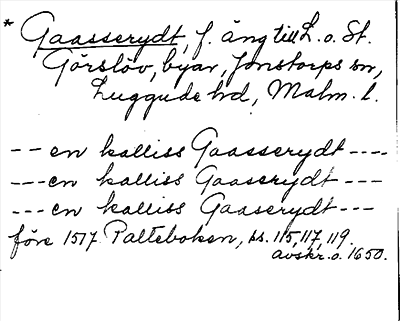 * Gaasserydt, f. äng till L. o. St.
Görslöv, byar, Jonstorps sn,
Luggude hd, Malm. l.
-- en kalliss Gaasserydt ----
--- en kalliss Gaasserydt ---
--- en kalliss Gaaserydt ---
före 1517 Palteboken, ss. 115, 117, 119.
avskr. o. 1650.